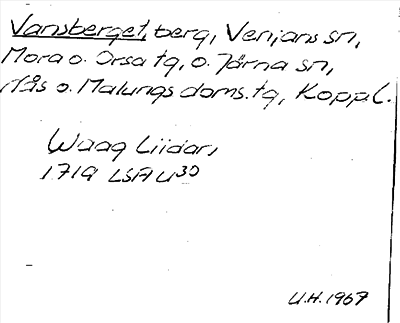 Vansberget, berg, Venjans sn,
Mora o. Orsa tg, o. Järna sn,
Nås o. Malungs doms. tg, Kopp.l.
Waag Liidar,
1719 LSA U30
U.H. 1967